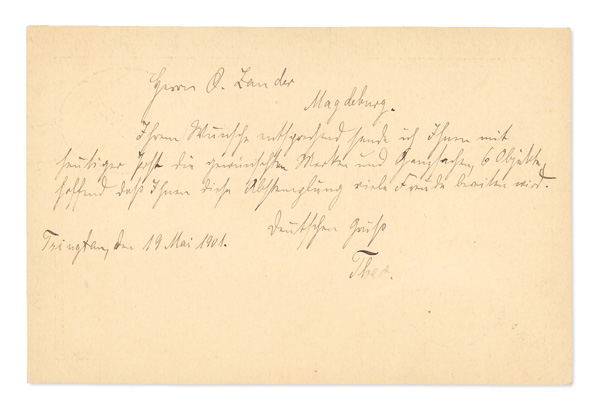 Herrn O. Zander
Magdeburg.
Ihrem Wunsche entsprechend sende ich Ihnen mit
heutiger Post die gewünschten Marken und Ganzsachen, 6 Objekte,
hoffend daß Ihnen diese Abstemplung viele Freude bereiten wird.
Deutschen Gruß
Tsingtau, den 19 Mai 1901.
Theo.